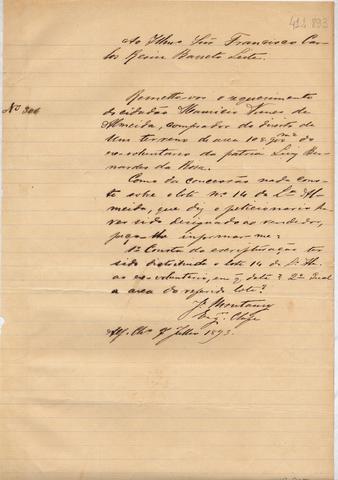 411 893
Ao Illmo Snr Francisco Car
los Resin Barreto Leite.
No 306
Remetto-vos o requerimento
do cidadão Mauricio Nunes de
Almeida, comprador do direito de
um terreno de area
ex-voluntario da patria Luiz Ber-
nardes da Rosa.
Como da concessão nada cons-
ta sobre o lote nº 14 da Da. Al-
meida, que diz o peticionario ha-
ver sido designado ao vendedor,
peço-lhe informar-me:
1º Consta da escripturação ter
sido distribuido o lote 14 da
ao ex-voluntario, em que data? 2º Qual
a area do referido lote?
J. Montaury
Engº Chefe
Julho 1893.